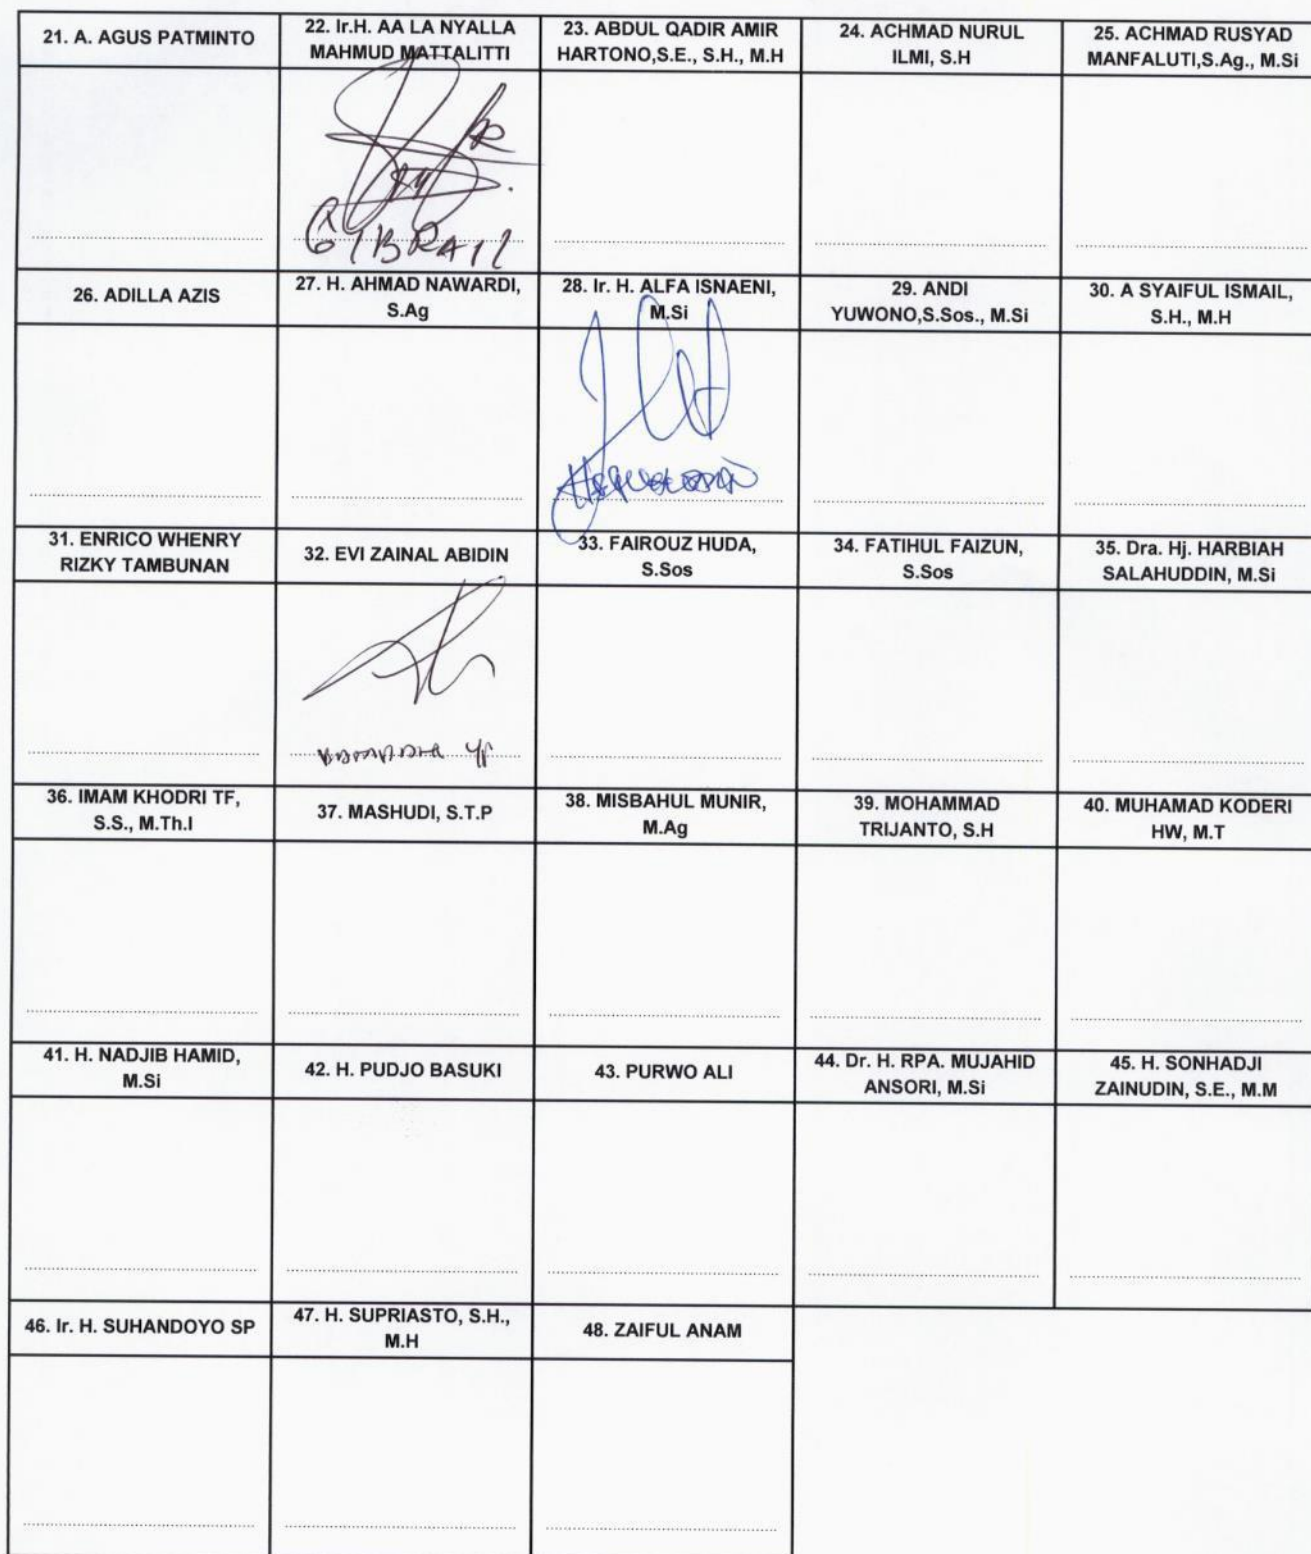 21. A. AGUS PATMINTO
22. Ir.H. AA LA NYALLA
MAHMUD MATTALITTI
23. ABDUL QADIR AMIR
HARTONO,S.E., S.H., M.H
24. ACHMAD NURUL
ILMI, S.H
25. ACHMAD RUSYAD
MANFALUTI,S.Ag., M.Si
GIBRAIL
26. ADILLA AZIS
27. H. AHMAD NAWARDI,
S.Ag
28. Ir. H. ALFA ISNAENI,
M.Si
29. ANDI
YUWONO,S.Sos., M.Si
30. A SYAIFUL ISMAIL,
S.H., M.H
31. ENRICO WHENRY
RIZKY TAMBUNAN
32. EVI ZAINAL ABIDIN
33. FAIROUZ HUDA,
S.Sos
34. FATIHUL FAIZUN,
S.Sos
35. Dra. Hj. HARBIAH
SALAHUDDIN, M.Si
36. IMAM KHODRI TF,
S.S., M.Th.I
37. MASHUDI, S.T.P
38. MISBAHUL MUNIR,
M.Ag
39. MOHAMMAD
TRIJANTO, S.H
40. MUHAMAD KODERI
HW, M.T
41. H. NADJIB HAMID,
M.Si
42. H. PUDJO BASUKI
43. PURWO ALI
44. Dr. H. RPA. MUJAHID
ANSORI, M.Si
45. H. SONHADJI
ZAINUDIN, S.E., M.M
46. Ir. H. SUHANDOYO SP
47. H. SUPRIASTO, S.H.,
M.H
48. ZAIFUL ANAM